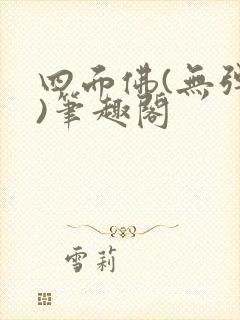 四面佛(無彈
)筆趣閣
雪莉